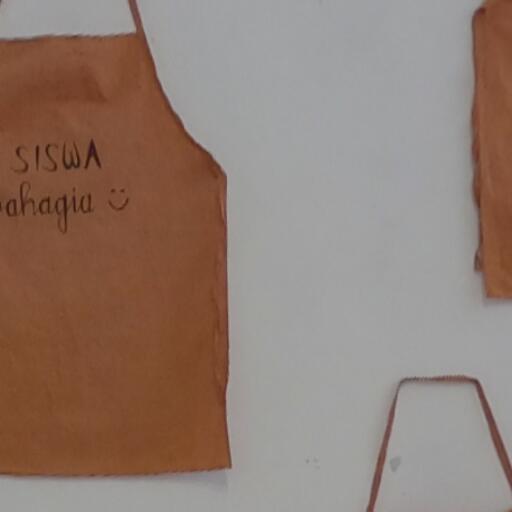 SISWA
bahagia :)